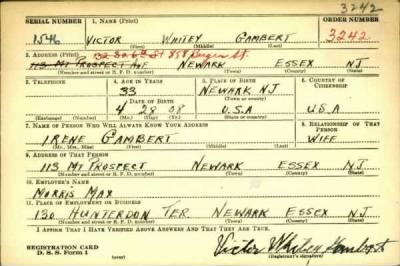 3242
SERIAL NUMBER 1. NAME (Print) ORDER NUMBER
1546 VICTOR WHITEY GAMBERT 3242
(First) (Middle) (Last)
2. ADDRESS (Print)
113 MT PROSPECT AVE NEWARK ESSEX NJ
(Number and street or R. F. D. number) (Town) (County) (State)
3. TELEPHONE 4. AGE IN YEARS 5. PLACE OF BIRTH 6. COUNTRY OF CITIZENSHIP
33 NEWARK NJ
DATE OF BIRTH (Town or county)
4 25 08 U.S.A USA
(Exchange) (Number) (Mo.) (Day) (Yr.) (State or country)
7. NAME OF PERSON WHO WILL ALWAYS KNOW YOUR ADDRESS 8. RELATIONSHIP OF THAT PERSON
IRENE GAMBERT WIFE
(Mr., Mrs., Miss) (First) (Middle) (Last)
9. ADDRESS OF THAT PERSON
113 MT PROSPECT NEWARK ESSEX NJ
(Number and street or R. F. D. number) (Town) (County) (State)
10. EMPLOYER'S NAME
MORRIS MAX
11. PLACE OF EMPLOYMENT OR BUSINESS
130 HUNTERDON TER NEWARK ESSEX NJ
(Number and street or R. F. D. number) (Town) (County) (State)
I AFFIRM THAT I HAVE VERIFIED ABOVE ANSWERS AND THAT THEY ARE TRUE.
REGISTRATION CARD
D. S. S. Form 1
(over)
Victor Whitey Gambert
(Registrant's signature)